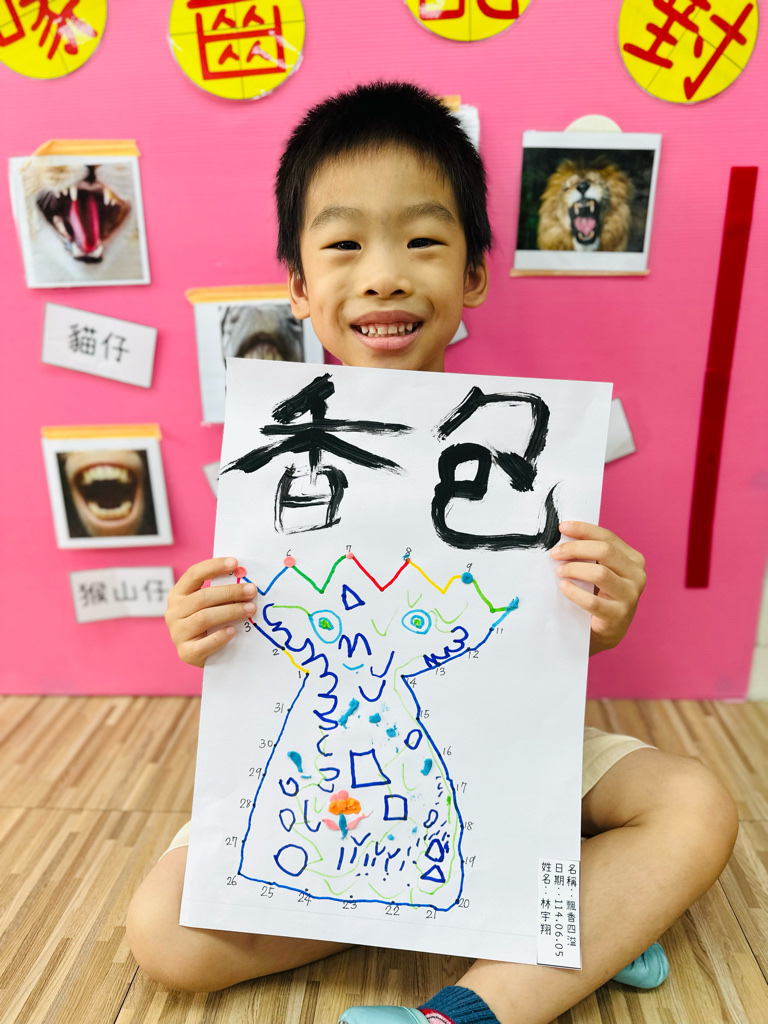 齒 配 對
貓仔
猴山仔
香包
6 7 8 9
3 11
2 12
1 14
31 15
30 16
29 17
28 18
27 19
26 25 24 23 22 21 20
名稱：飄香四溢
日期：114.06.05
姓名：林宇翔